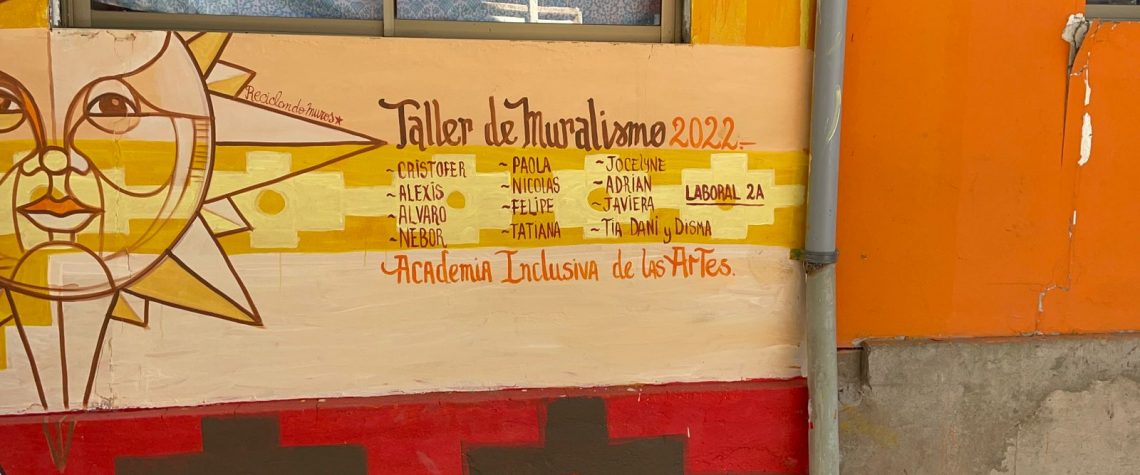 Reciclando muros
Taller de Muralismo 2022.-
~CRISTOFER
~ALEXIS
~ALVARO
~NEBOR
~PAOLA
~NICOLAS
~FELIPE
~TATIANA
~JOCELYNE
~ADRIAN
~JAVIERA
~TIA DANI y DISMA
LABORAL 2A
Academia Inclusiva de las Artes.